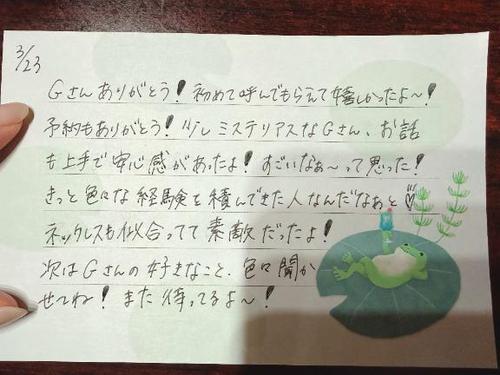 3/23
Gさんありがとう！初めて呼んでもらえて嬉しかったよ〜！
予約もありがとう！少しミステリアスなGさん、お話
も上手で安心感があったよ！すごいなぁ〜って思った！
きっと色々な経験を積んできた人なんだなぁと♡
ネックレスも似合ってて素敵だったよ！
次はGさんの好きなこと、色々聞か
せてね！また待ってるよ〜！